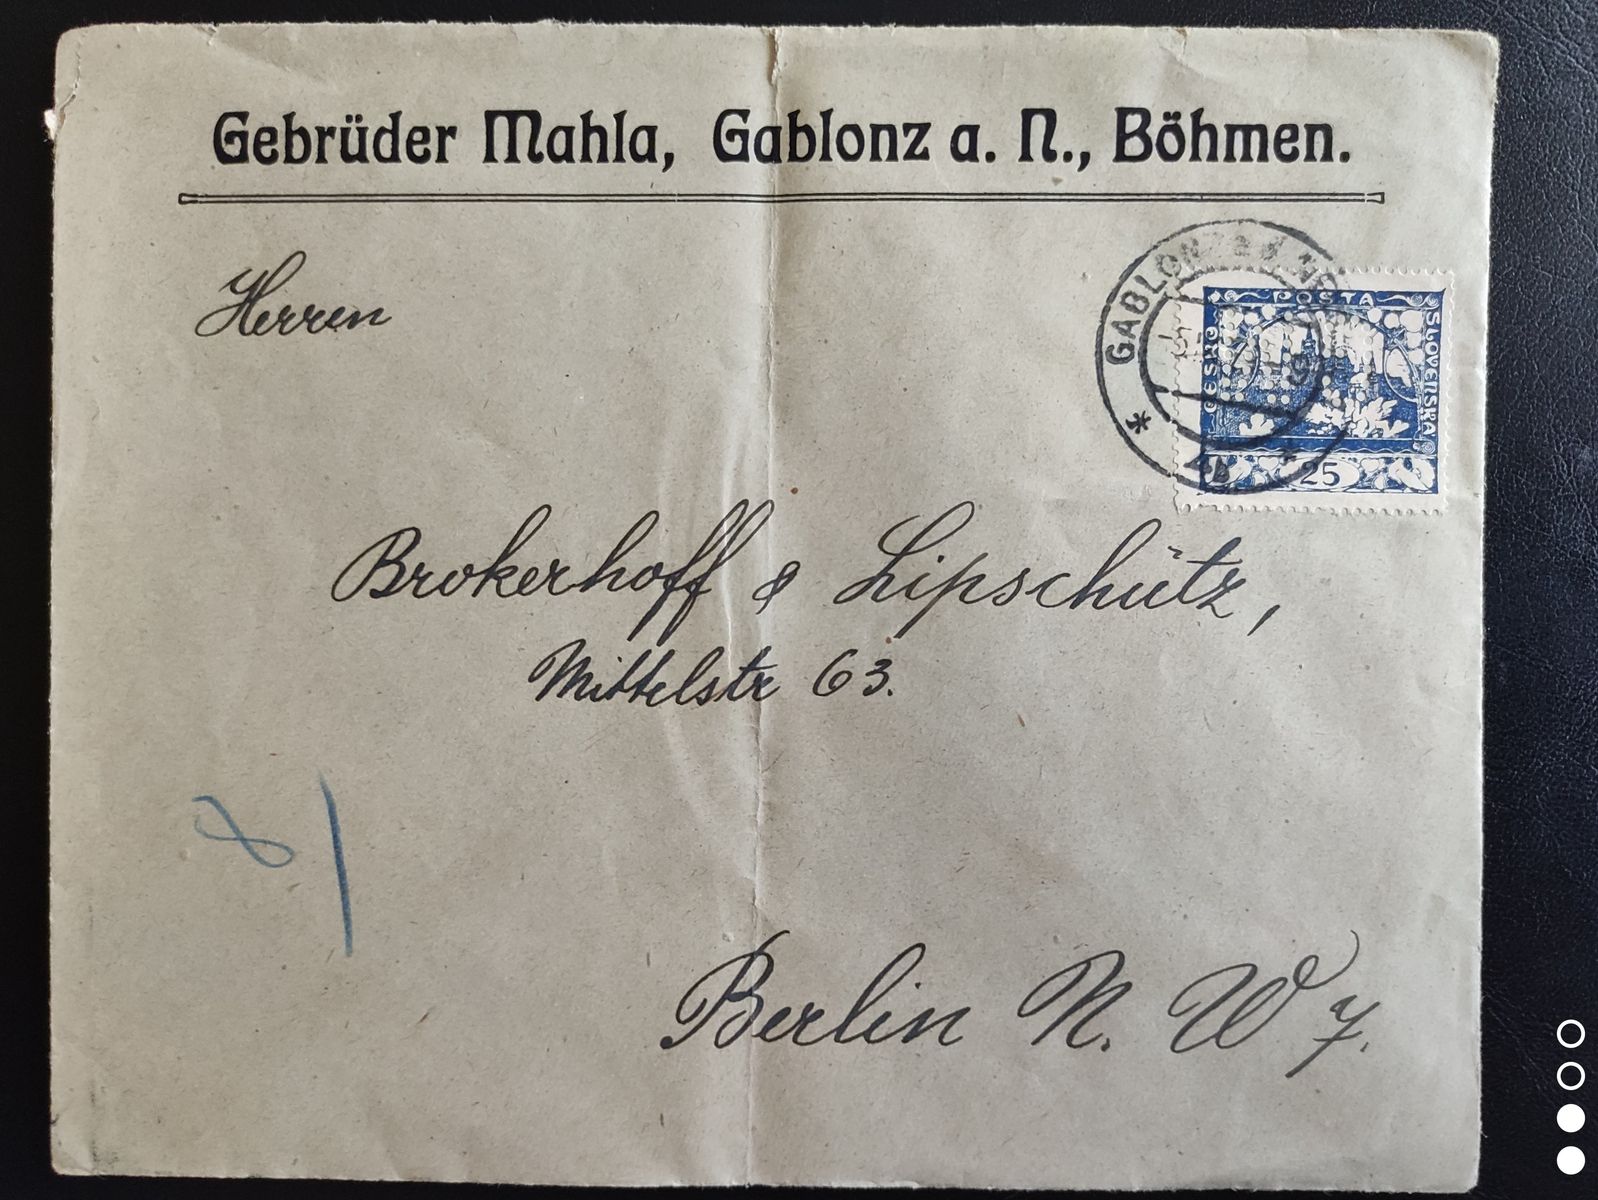 Gebrüder Mahla, Gablonz a. N., Böhmen.
Herren
GABLONZ
POSTA
ČESKO
SLOVENSKÁ
25
4b
Brokerhoff & Lipschütz,
Mittelstr 63.
8/
Berlin N. W 7.